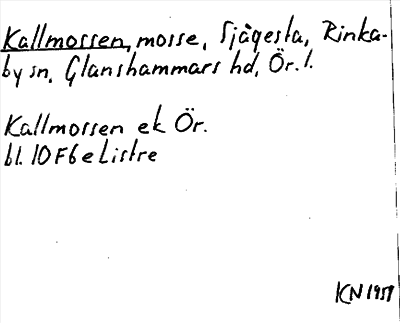 Kallmossen, mosse, Sjägesta, Rinka-
by sn, Glanshammars hd, Ör. l.
Kallmossen ek Ör.
bl. 10F6e Listre
KN 1951